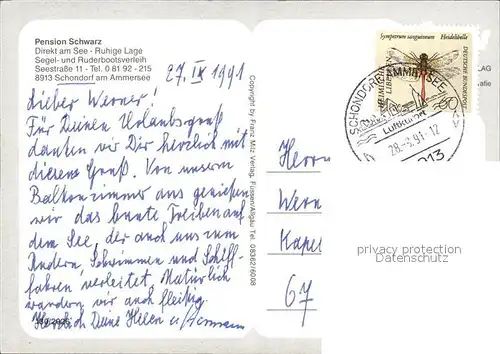 Pension Schwarz
Direkt am See - Ruhige Lage
Segel- und Ruderbootsverleih
Seestraße 11 - Tel. 0 81 92 - 215
8913 Schondorf am Ammersee
27. IX 1991
Lieber Werner!
Für Deinen Urlaubsgruß
danken wir Dir herzlich mit
diesem Gruß. Von unserem
Balkonzimmer aus genießen
wir das bunte Treiben auf
dem See, der auch uns zum
Rudern, Schwimmen und Schiff-
fahren verleitet. Natürlich
wandern wir auch fleißig.
Herzlich Deine Helen u. Hermann
Copyright by Franz Milz Verlag, Füssen/Allgäu Tel. 08362/6008
Sympetrum sanguineum Heidelibelle
DEUTSCHE BUNDESPOST
60
SCHONDORF AMMERSEE
Luftkurort
28.-8.91-12
8913
LAG
alle
Herrn
Wern
Kapel
67
privacy protection
DatenSchutz